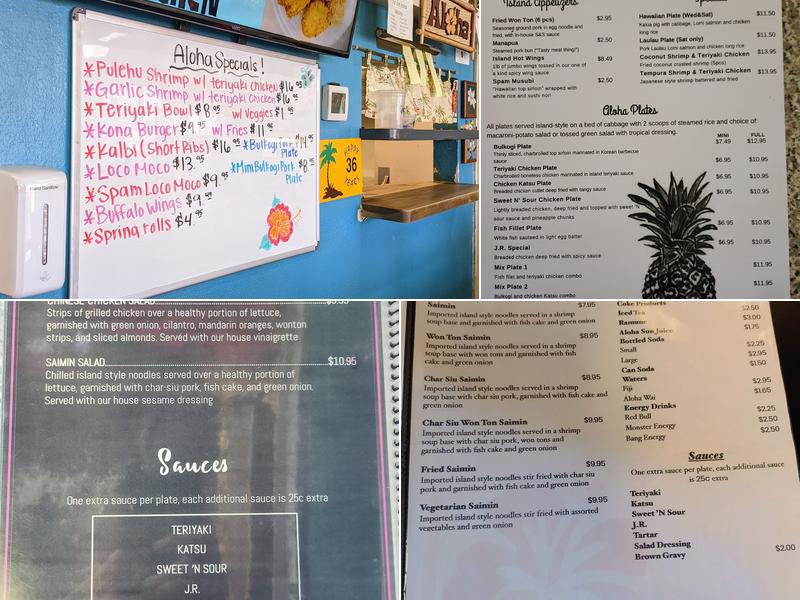 Aloha
Aloha Specials!
*Pulehu Shrimp w/ teriyaki Chicken $16.95
*Garlic Shrimp w/ teriyaki Chicken $16.95
*Teriyaki Bowl $8.95 w/ Veggies $1.95
*Kona Burger $9.95 w/ Fries $11.95
*Kalbi (Short Ribs) $16.95
*Bulkogi Pork Plate $14.95
*Loco Moco $13.95
*Mini Bulkogi Pork Plate $8.95
*Spam Loco Moco $9.95
*Buffalo Wings $9.95
*Spring rolls $4.95
Hand Sanitizer
HAPPY
36
YEARS
Island Appetizers
Fried Won Ton (6 pcs) $2.95
Seasoned ground pork in egg noodle and
fried, with in-house S&S sauce
Manapua $2.50
Steamed pork bun ("Tasty meal thing")
Island Hot Wings $8.49
1lb of jumbo wings tossed in our one of
a kind spicy wing sauce
Spam Musubi $2.50
"Hawaiian top sirloin" wrapped with
white rice and sushi nori
Hawaiian Plate (Wed&Sat) $11.50
Kalua pig with cabbage, Lomi salmon and chicken
long rice
Laulau Plate (Sat only) $11.50
Pork Laulau Lomi salmon and chicken long rice
Coconut Shrimp & Teriyaki Chicken $13.95
Fried coconut crusted shrimp (5pcs)
Tempura Shrimp & Teriyaki Chicken $13.95
Japanese style shrimp battered and fried
Aloha Plates
All plates served island-style on a bed of cabbage with 2 scoops of steamed rice and choice of:
macaroni-potato salad or tossed green salad with tropical dressing.
MINI FULL
Bulkogi Plate $7.49 $12.95
Thinly sliced, charbroiled top sirloin marinated in Korean barbecue
sauce
Teriyaki Chicken Plate $6.95 $10.95
Charbroiled boneless chicken marinated in island teriyaki sauce
Chicken Katsu Plate $6.95 $10.95
Breaded chicken cutlet deep fried with tangy sauce
Sweet N' Sour Chicken Plate $6.95 $10.95
Lightly breaded chicken, deep fried and topped with sweet 'N
sour sauce and pineapple chunks
Fish Fillet Plate $6.95 $10.95
White fish sauteed in light egg batter
J.R. Special $6.95 $10.95
Breaded chicken deep fried with spicy sauce
Mix Plate 1 $11.95
Fish filet and teriyaki chicken combo
Mix Plate 2 $11.95
Bulkogi and Chicken Katsu combo
CHINESE CHICKEN SALAD
Strips of grilled chicken over a healthy portion of lettuce,
garnished with green onion, cilantro, mandarin oranges, wonton
strips, and sliced almonds. Served with our house vinaigrette
SAIMIN SALAD $10.95
Chilled island style noodles served over a healthy portion of
lettuce, garnished with char-siu pork, fish cake, and green onion.
Served with our house sesame dressing
Sauces
One extra sauce per plate, each additional sauce is 25c extra
TERIYAKI
KATSU
SWEET 'N SOUR
J.R.
Saimin $7.95
Imported island style noodles served in a shrimp
soup base and garnished with fish cake and green onion
Won Ton Saimin $8.95
Imported island style noodles served in a shrimp
soup base with won tons and garnished with fish
cake and green onion
Char Siu Saimin $8.95
Imported island style noodles served in a shrimp
soup base with char siu pork, garnished with fish cake and
green onion
Char Siu Won Ton Saimin $9.95
Imported island style noodles served in a shrimp
soup base with char siu pork, won tons and
garnished with fish cake and green onion
Fried Saimin $9.95
Imported island style noodles stir fried with char siu
pork and garnished with fish cake and green onion
Vegetarian Saimin $9.95
Imported island style noodles stir fried with assorted
vegetables and green onion
Coke Products $2.50
Iced Tea $3.00
Ramune $1.75
Aloha Sun Juice
Bottled Soda $2.25
Small $2.95
Large $1.50
Can Soda
Waters $2.95
Fiji $1.65
Aloha Wai
Energy Drinks $2.25
Red Bull $2.50
Monster Energy $2.50
Bang Energy
Sauces
One extra sauce per plate, each additional sauce
is 25c extra
Teriyaki
Katsu
Sweet 'N Sour
J.R.
Tartar
Salad Dressing
Brown Gravy $2.00